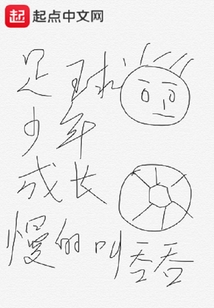 起 起点中文网
足球
少年
成长
慢的叫吞吞